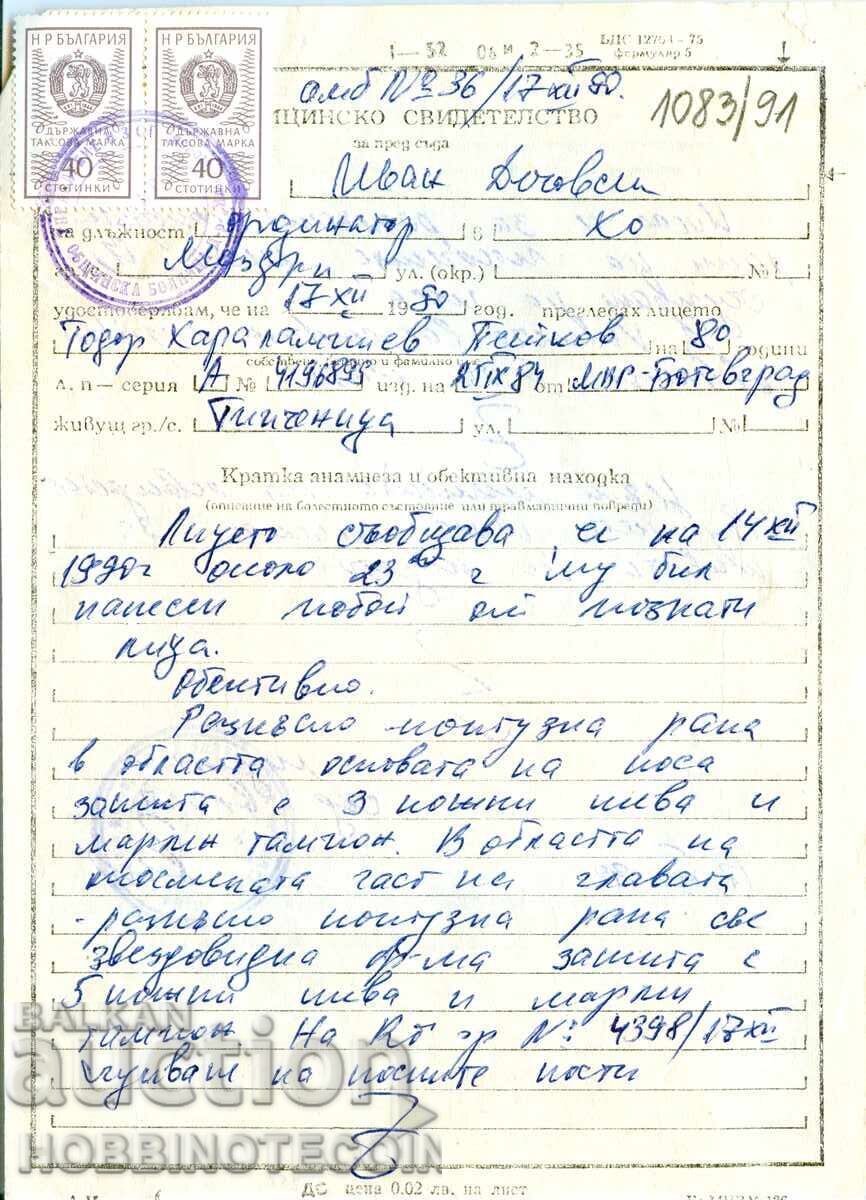 НР БЪЛГАРИЯ НР БЪЛГАРИЯ
ДЪРЖАВНА ДЪРЖАВНА
ТАКСОВА МАРКА ТАКСОВА МАРКА
40 40
СТОТИНКИ СТОТИНКИ
БДС 12704-75
формуляр 5
амб № 36/17XII90.
1083/91
ЦИНСКО СВИДЕТЕЛСТВО
за пред съда
Иван
на длъжност ординатор в ХО
Мездра ул. (окр.) №
удостоверявам, че на 17XII 1990 год. прегледах лицето
Тодор Харалампиев Петков на 80 години
собствено, бащино и фамилно име
л. п — серия А № изд. на от МВР-Ботевград
живущ гр./с. Типченица ул. №
Кратка анамнеза и обективна находка
(описание на болестното състояние или травматични повреди)
Лицето съобщава че на 14XII
1990г около 23 ч му бил
нанесен побой от познати
лица.
Обективно.
Разкъсно контузна рана
в областта основата на носа
зашита с 3 кожни шева и
марлен тампон. В областта на
космената част на главата
-разкъсно контузна рана със
звездовидна ф-ма зашита с
5 кожни шева и марлен
тампон На Rö гр №: 4398/17XII
счупване на носните кости
BALKAN
auction
HOBBINOTECOIN
ДС цена 0.02 лв. на лист